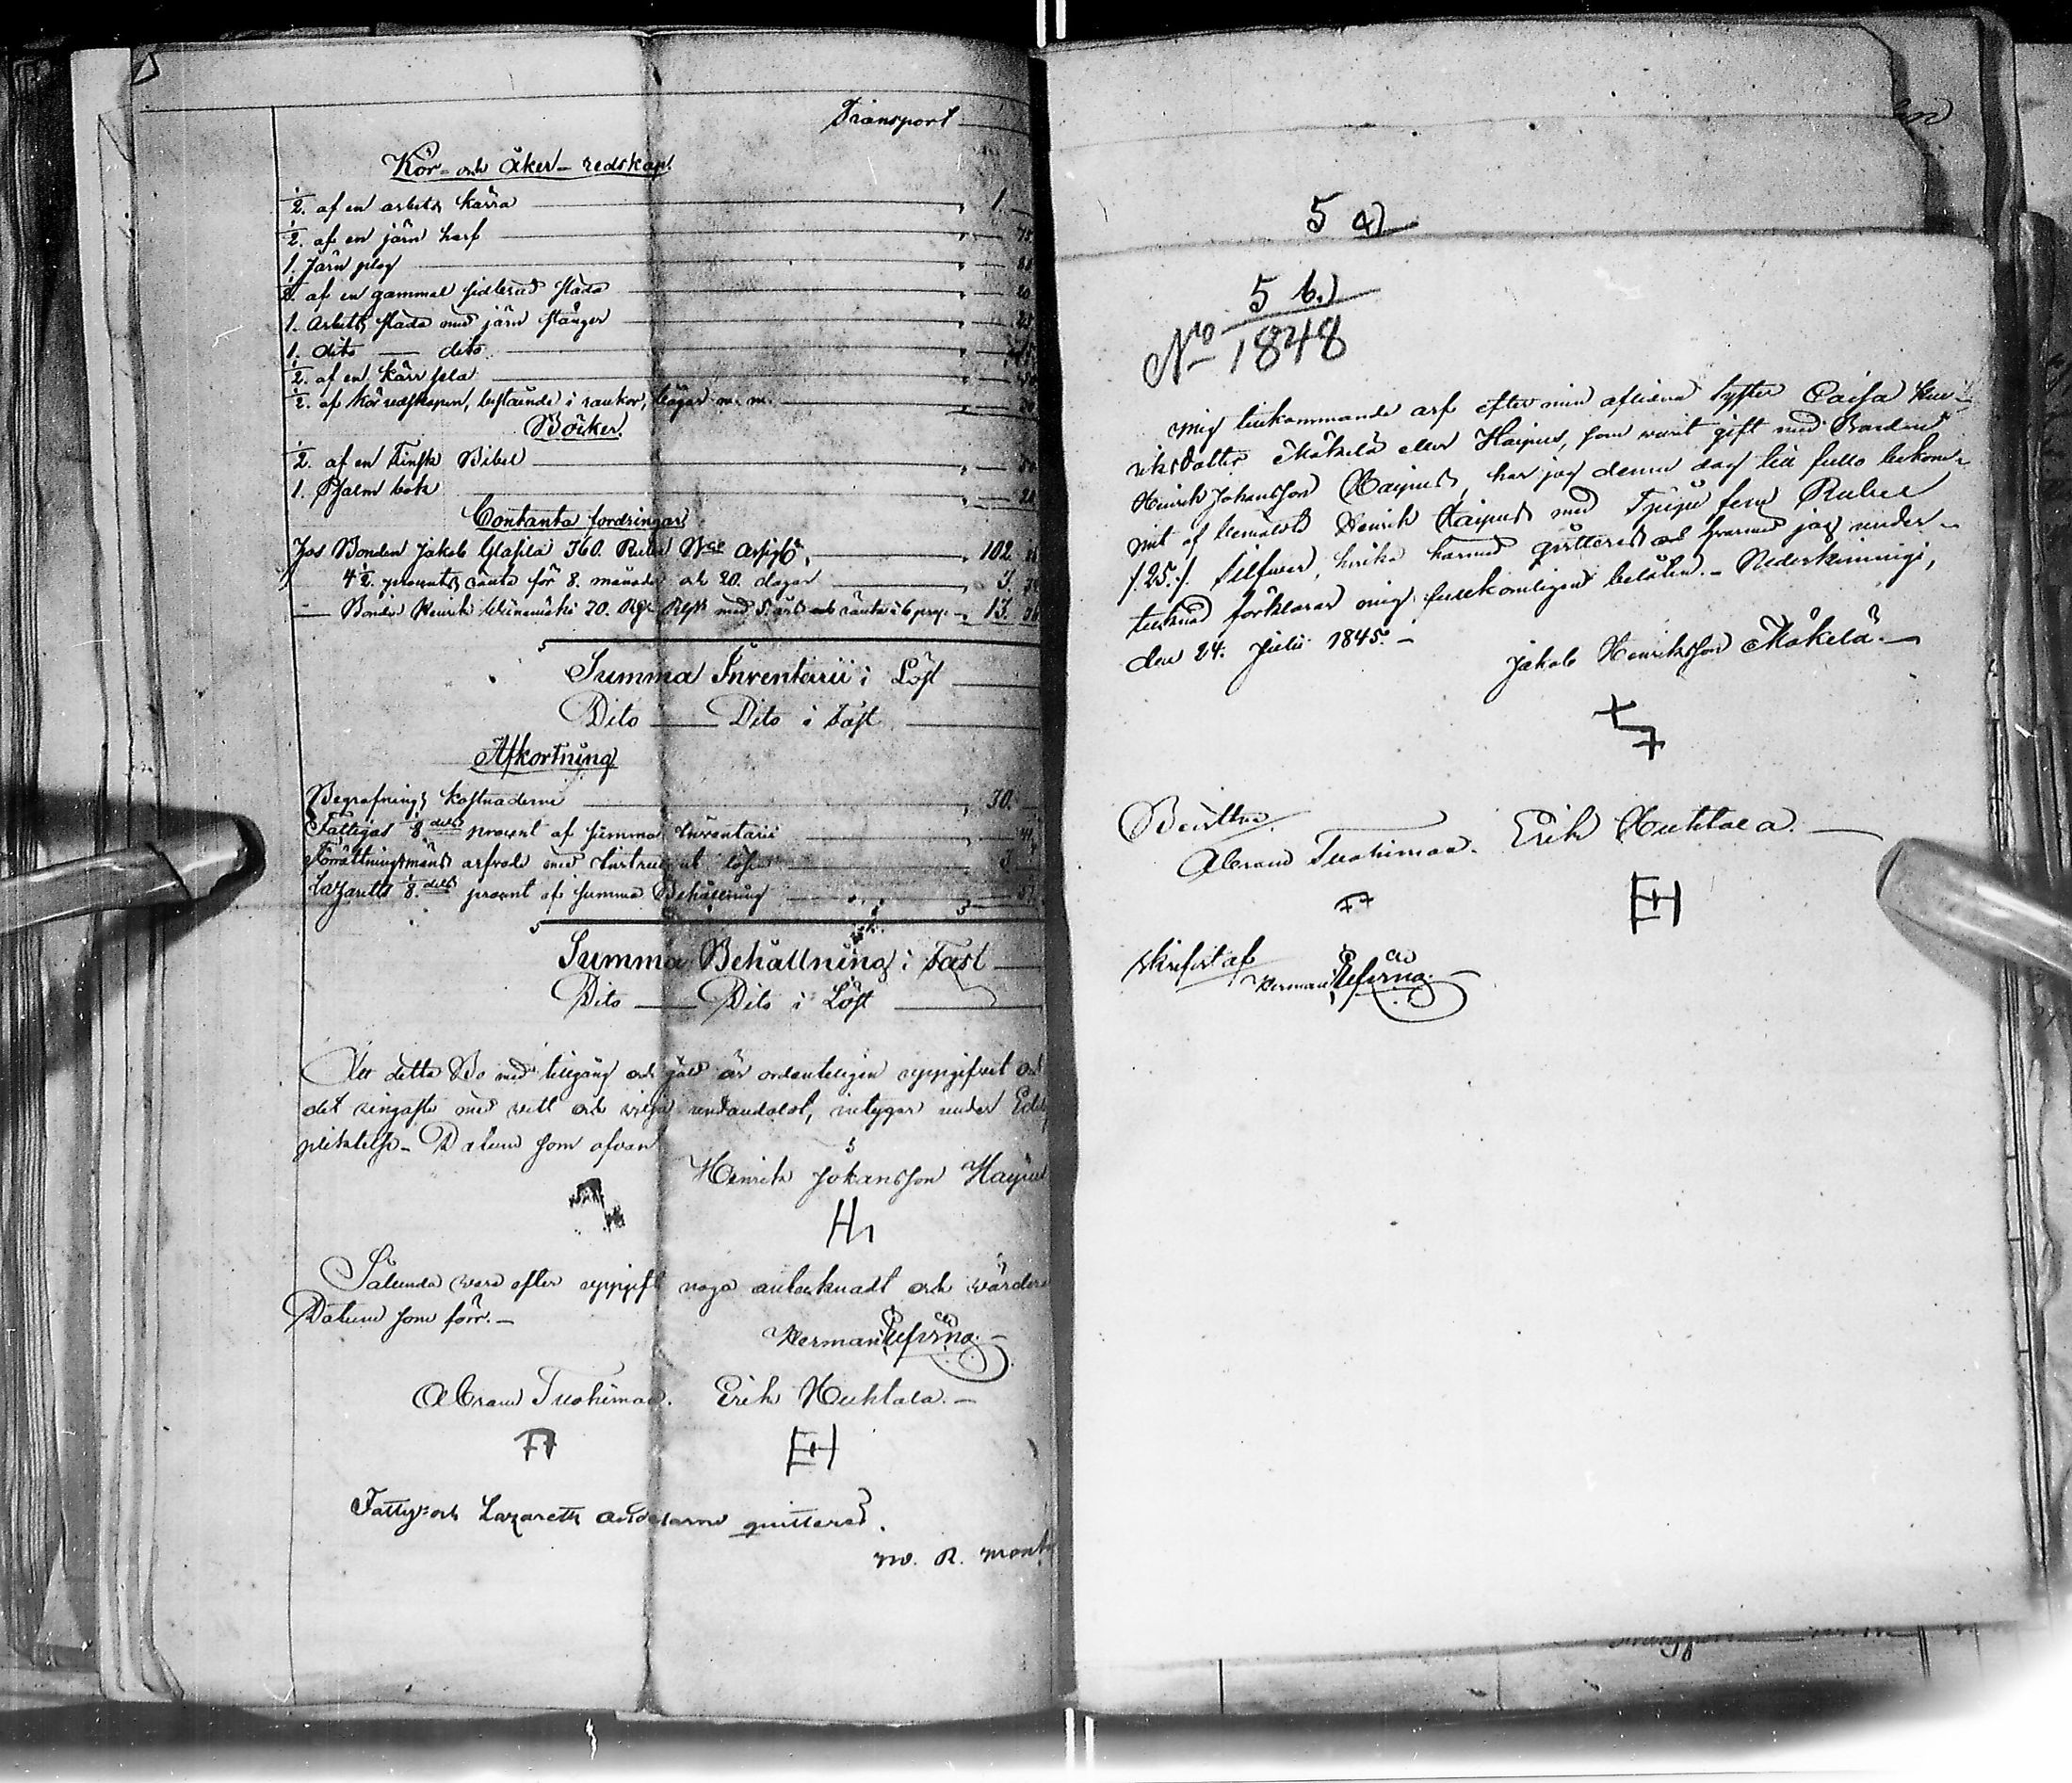 Transport
Kör- och åker-redskap.
1/2. af en arbets kärra 1.
1/2. af en järn harf 75
1. Järn plog
1/2. af en gammal fidlerad släda 20
1. Arbets släda med järn stånger 25
1. dito dito
1/2. af en kärr
1/2. af körredskapen, bestående i rankor, bogar m. m.
Böcker.
1/2. af en Finsk Bibel 50
1. Psalm bok 20
Contanta fordringar
Hos Bonden Jakob 360. Rubel B:co Assign: 102.
4 1/2. procents ränta för 8. månader och 20. dagar 3.
Bonden Henrik 70. Rgs med 5. års ränta à 6 proc. 13.
Summa Inventarii i Löst
Dito Dito i Fast
Afkortning
Begrafnings kostnaderne 30.
Fattigas 1/8.dels procent af summa Inventarii
Förrättningsmäns arfvode med lösen 3
Lazaretts 1/8.dels procent af summa Behållning
Summa Behållning i Fast
Dito Dito i Löst
Att detta Bo med tillgång och gäld är ordenteligen uppgifvet och
det ringaste med vett och vilja undandolt, intygar under Eds
plicktelse. Datum som ofvan
Henrik Johansson
H
Sålunda vara efter uppgift noga antecknadt och värder
Datum som förr.
Herman
Abram Tuohimaa. Erik Huhtala.
EH
Fattig- och Lazaretts andelarne quitteras.
5 a)
5 b.)
No 1848
Mig tillkommande arf efter min aflidna syster Caisa Hen-
riksdotter Mäkelä eller Haipus, som varit gift med Bonden
Henrik Johansson Haipus, har jag denna dag till fullo bekom-
mit af bemälde Henrik Haipus med Tjugu fem Rubel
/.25./. Silfver, hvilka härmed qvitteras och hvarmed jag under-
tecknad förklarar mig fullkomligen belåten. - Nederkiimingi,
den 24. Julii 1845. -
Jakob Henriksson Mäkelä. -
Bevittna
Abram Tuohimaa. Erik Huhtala. -
EH
skrifvit af
Herman